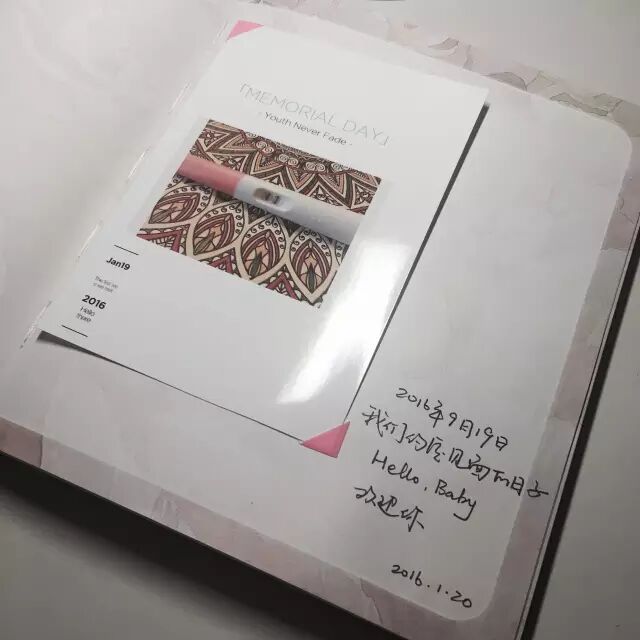 「MEMORIAL DAY」
· Youth Never Fade ·
Jan19
2016
Hello
there
2016年9月19日
我们约定见面的日子
Hello, Baby
欢迎你
2016.1.20